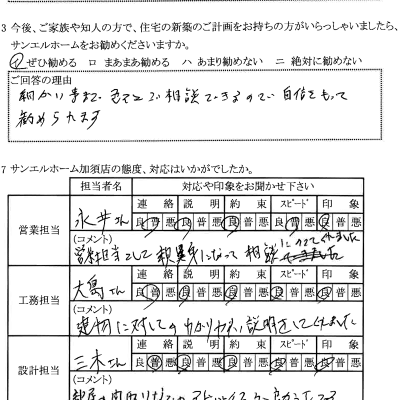 3 今後、ご家族や知人の方で、住宅の新築のご計画をお持ちの方がいらっしゃいましたら、
サンエルホームをお勧めくださいますか。
イ ぜひ勧める ロ まあまあ勧める ハ あまり勧めない ニ 絶対に勧めない
ご回答の理由
細かい事まで 相談できるので 自信をもって
勧められます
7 サンエルホーム加須店の態度、対応はいかがでしたか。
担当者名 対応や印象をお聞かせ下さい
連絡 説明 約束 スピード 印象
営業担当 永井さん 良 普 悪 良 普 悪 良 普 悪 良 普 悪 良 普 悪
(コメント)
営業担当として 親身になって 相談にのってくれました
連絡 説明 約束 スピード 印象
工務担当 大島さん 良 普 悪 良 普 悪 良 普 悪 良 普 悪 良 普 悪
(コメント)
建物に対しての わかりやすい 説明をしてくれました
連絡 説明 約束 スピード 印象
設計担当 三木さん 良 普 悪 良 普 悪 良 普 悪 良 普 悪 良 普 悪
(コメント)